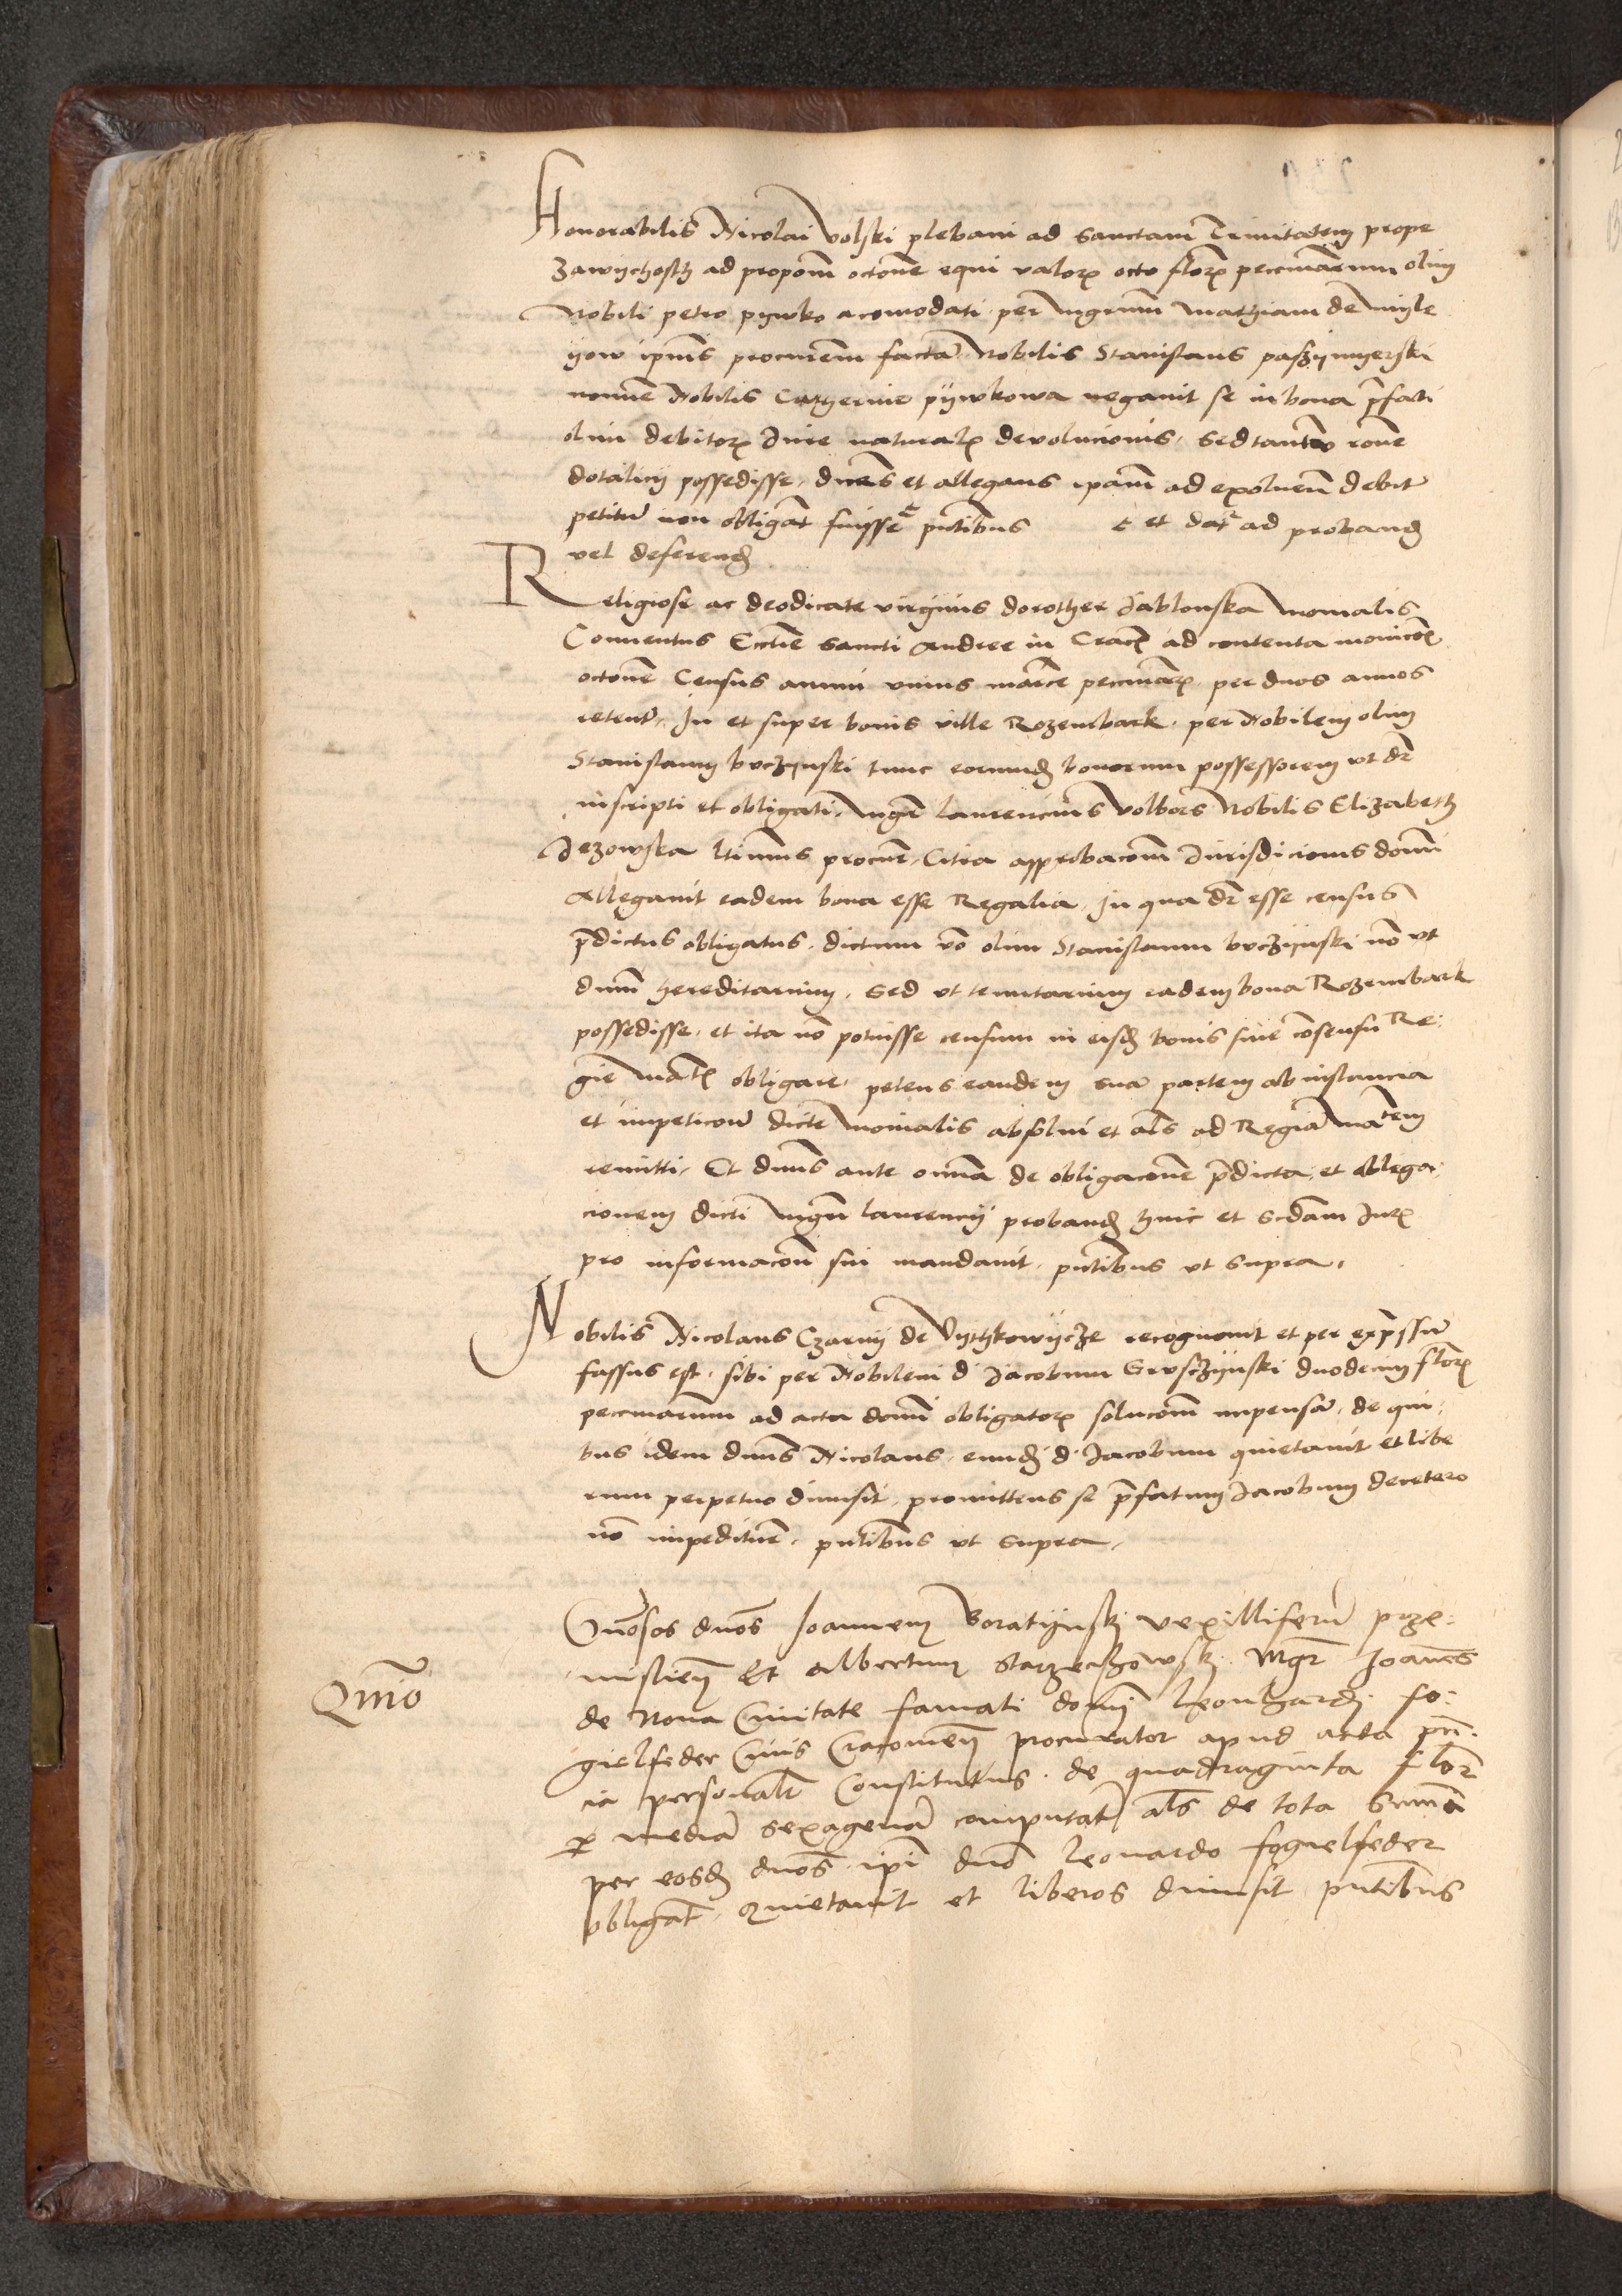 Honorabilis Nicolai Volski plebani ad sanctam Trinitatem prope
Zawychosth ad proponm octone equi valorʒ octo florʒ peccuniarum olim
Nobili petro pywko acomodati per mgrum Mathiam de
ipius procurem factā Nobilis Stanislaus
nomine Nobilis Catherine pywkowa negavit se in bona p̄fati
olim debitorʒ Iure naturalʒ devolucionis, sed tantum rōne
dotalicij possedisse, dicens et allegans ipam ad exolvenū debitū
petitū non obligat̄ fuisse pn̄tibus et dat ad proband
vel deferend
Religiose ac deodicate virginis dorothee Iablonska monialis
Conventus Ecclie sancti Andree in Cracʒ ad contenta monicōʒ
octone Census annui unius marce peccuniarʒ per duos annos
retentʒ, In et super bonis ville Rozembark, per Nobilem olim
Stanislaum buczynski tunc eorund bonorum possessorem ut dr
inscripti et obligati, mgr laurencius Volbors Nobilis Elizabeth
Iezowska ltimus procur, Citra approbacom Iurisdicionis domi
Allegavit eadem bona esse Regalia, In qua dr esse census
p̄dictus obligatus, dictum vo olim Stanislaum buczynski nō ut
dnm hereditarium, sed ut tenutarium eadem bona Rozembark
possedisse, et ita nō potuisse censum in eisd bonis sine cōsensu Re:
gie matʒ obligare, petens eandem suā partem ab instancia
et impeticōe dicte monialis absolui et als ad Regiā matem
remitti, Et dnus ante omnia de obligacōne p̄dicta, et allega:
cionem dicti mgri laurencij proband hinc et scdam Iurʒ
pro informacōn sui mandavit, pn̄tibus ut supra,
Nobilis Nicolaus Czarny de Vythkowycze recognovit et per exp̄ssum
fassus est, sibi per Nobilem d Iacobum duodecim florʒ
peccuniarum ad acta domi obligatorʒ solucōm impensā, de qui:
bus idem dnus Nicolaus, eund d. Iacobum quietavit et libe
rum perpetuo dimisit, promittens se p̄fatum Iacobum decetero
nō impeditur, pn̄tibus ut supra,
Gnosos dnos Ioannem Boratijnski vexilliferū prze:
misliens Et Albertum Mgr Ioannes
Qntio
de Nova Civitate famati domi Leonhardi fo:
gielfeder Civis Cracoviens procurator apud acta pn:
cia personalr Constitutus, de quadraginta flor
ꝑ mediā sexagenā computat als de tota summa
per eosd dnos ipi dno Leonardo fogielfeder
obligat, Quietavit et liberos dimisit pn̄tibus